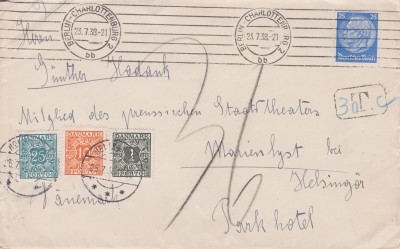 BERLIN-CHARLOTTENBURG 2
23.7.38.-21
bb
BERLIN-CHARLOTTENBURG 2
23.7.38.-21
bb
25
Herrn
Günther Hadank
Mitglied des preussischen Staatstheaters
Marienlyst bei
Helsingör
Parkhotel
Dänemark
36
DANMARK
25
PORTO
DANMARK
10
PORTO
DANMARK
1
PORTO